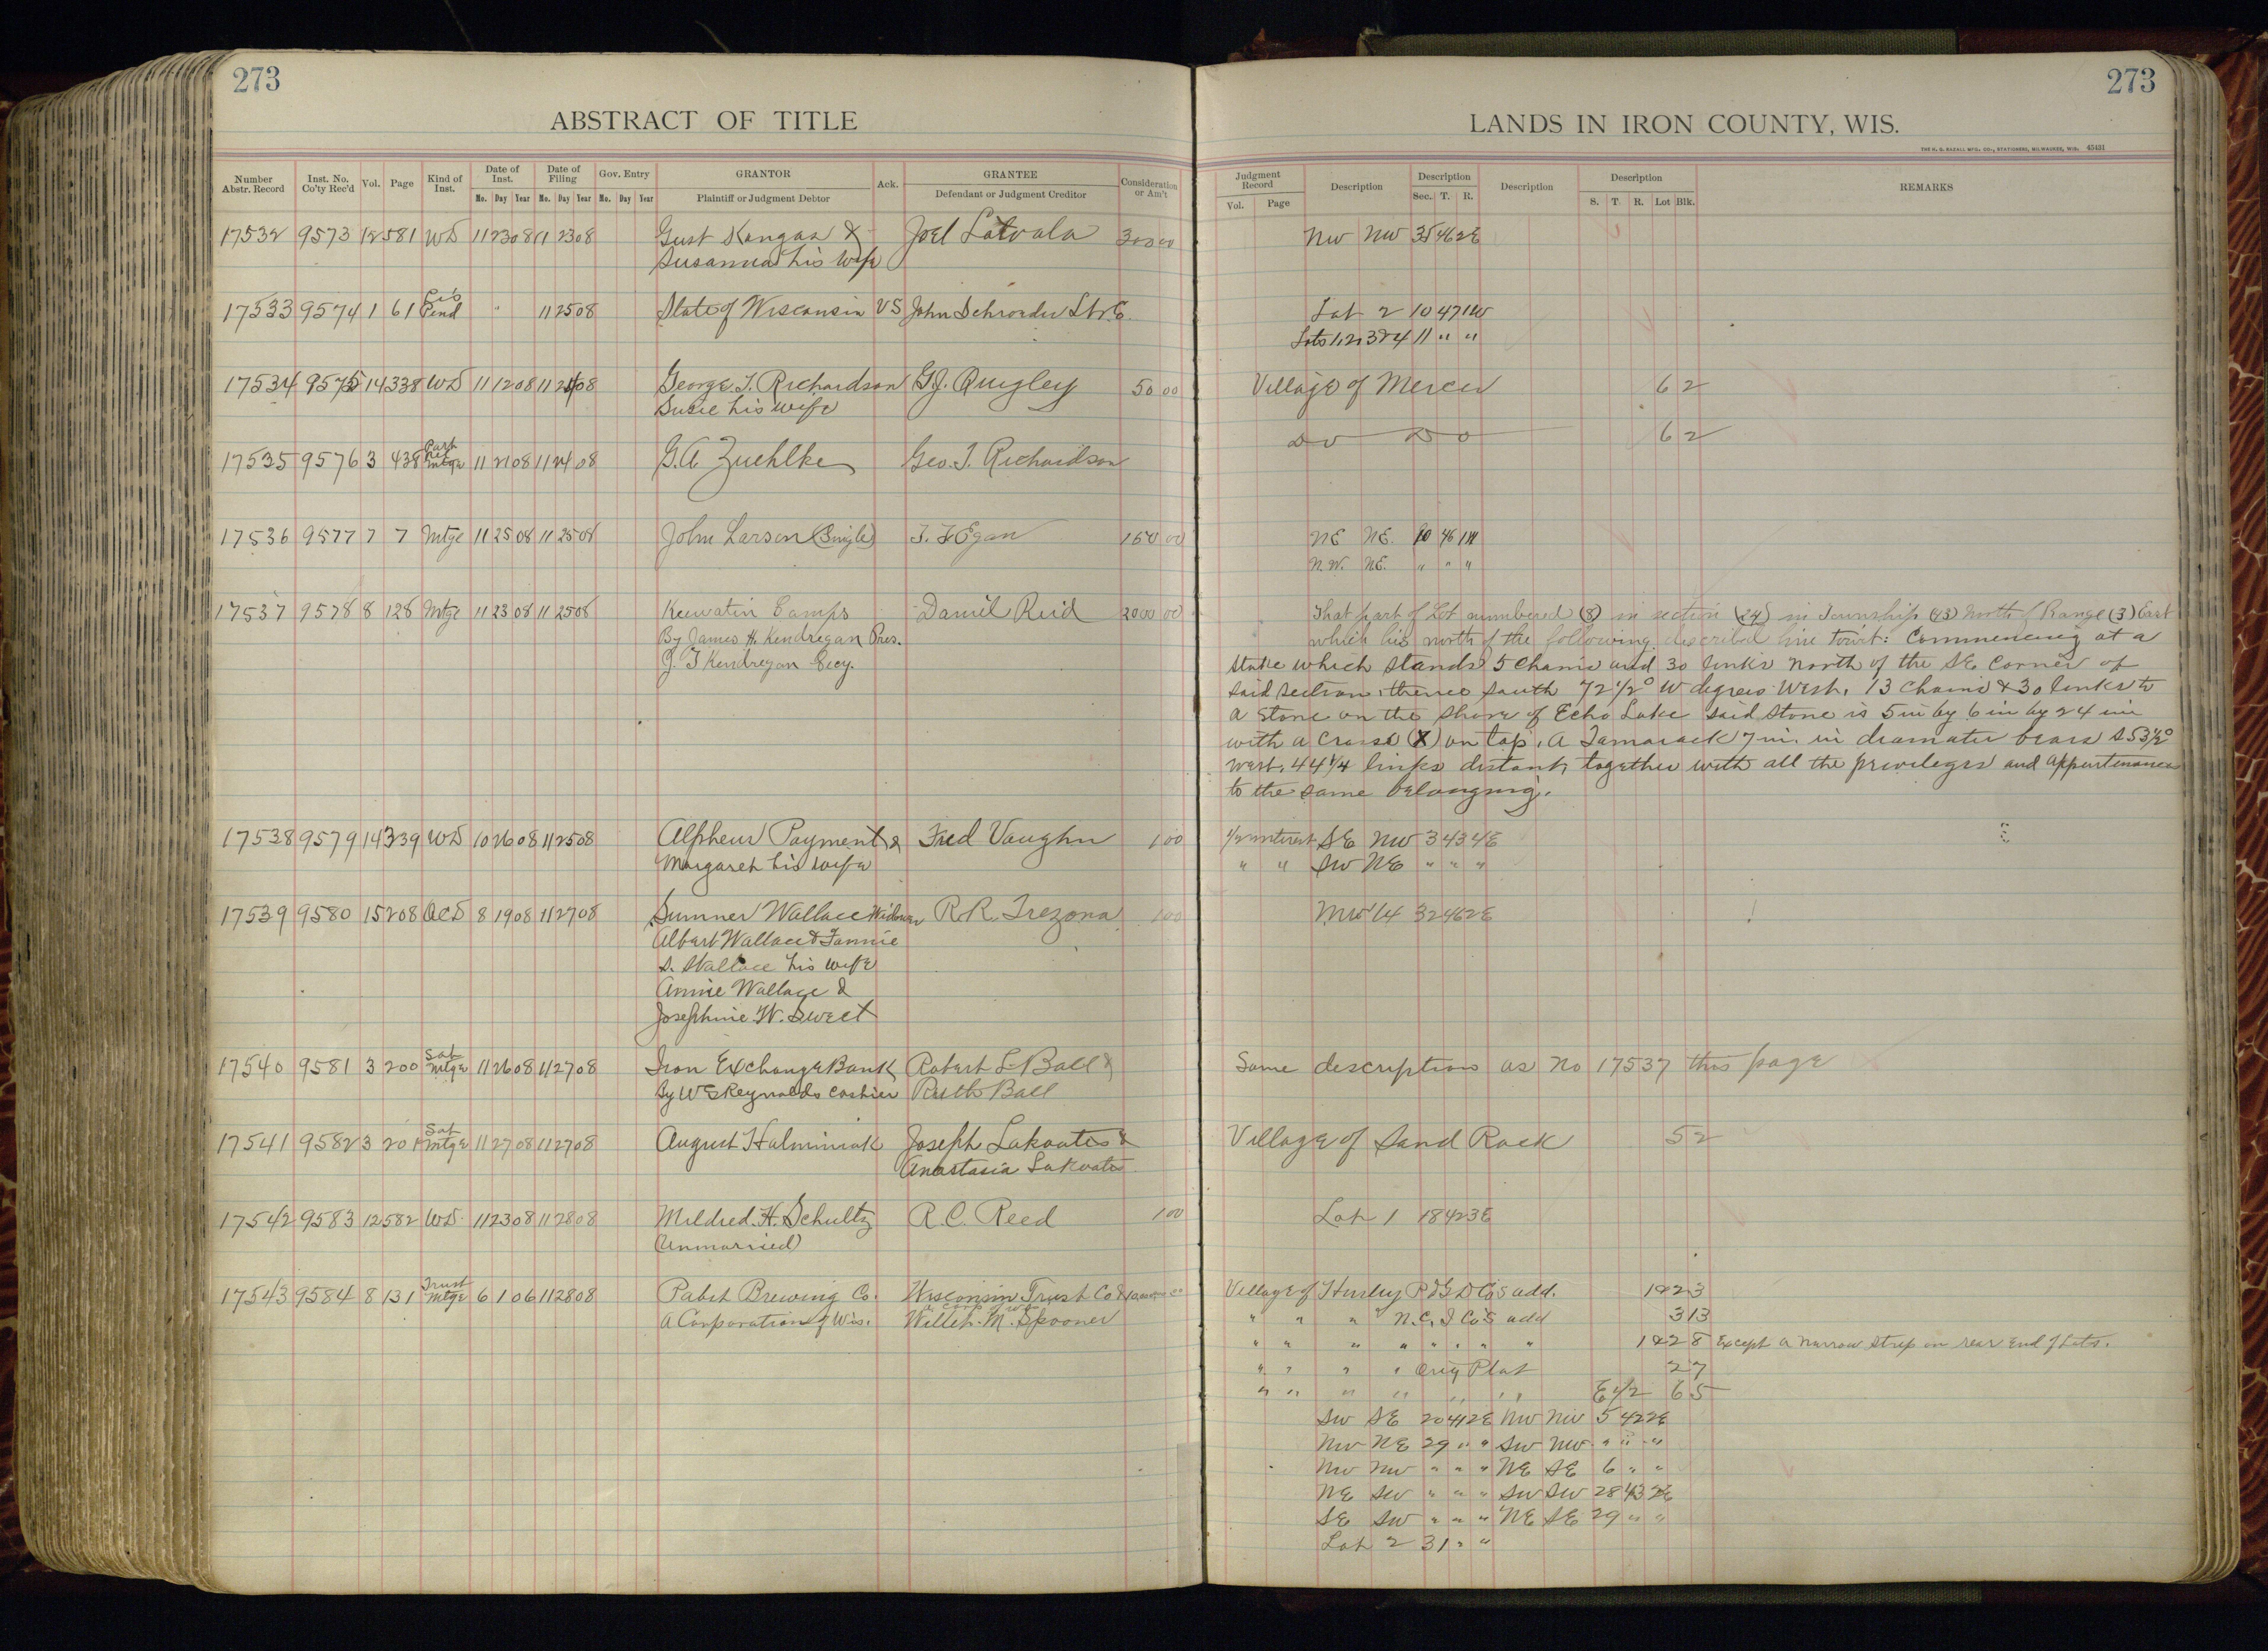 273
ABSTRACT OF TITLE
Number Abstr. Record | Inst. No. Co'ty Rec'd | Vol. | Page | Kind of Inst. | Date of Inst. Mo. Day Year | Date of Filing Mo. Day Year | Gov. Entry Mo. Day Year | GRANTOR Plaintiff or Judgment Debtor | Ack. | GRANTEE Defendant or Judgment Creditor | Consideration or Am't
17532 9573 12 581 WD 11 23 08 11 23 08 Gust Kangas & Joel Latvala 300 00
Susanna his wife
17533 9574 1 61 Lis Pend 11 25 08 State of Wisconsin VS John Schroeder Lbr. C.
17534 9575 14 338 WD 11 12 08 11 24 08 George T. Richardson G.J. Quigley 50 00
Susie his wife
17535 9576 3 438 Part Rel Mtge 11 21 08 11 24 08 G.A Zuehlke Geo. T. Richardson
17536 9577 7 7 Mtge 11 25 08 11 25 08 John Larson (Single) T. F Egan 160 00
17537 9578 8 128 Mtge 11 23 08 11 25 08 Keewatin Camps Daniel Reid 2000 00
By James H. Kendregan Pres.
J. T Kendregan Secy.
17538 9579 14 339 WD 10 26 08 11 25 08 Alpheus Payment & Fred Vaughn 1 00
Margaret his wife
17539 9580 15 208 QCD 8 19 08 11 27 08 Sumner Wallace Widower R.R. Trezona 1 00
Albert Wallace & Fannie
S. Wallace his wife
Annie Wallace &
Josephine W. Sweet
17540 9581 3 200 Sat Mtge 11 26 08 11 27 08 Iron Exchange Bank Robert L Ball &
By W S Reynolds Cashier Ruth Ball
17541 9582 3 201 Sat Mtge 11 27 08 11 27 08 August Halminiak Joseph Lakoates &
Anastasia Lakoates
17542 9583 12 582 WD. 11 23 08 11 28 08 Mildred. H. Schultz R.C. Reed 1 00
(Unmarried)
17543 9584 8 131 Trust Mtge 6 1 06 11 28 08 Pabst Brewing Co. Wisconsin Trust Co &
a Corp of Wis
A Corporation of Wis. Willet. M. Spooner
273
LANDS IN IRON COUNTY, WIS.
THE H. G. RAZALL MFG. CO., STATIONERS, MILWAUKEE, WIS. 45431
Judgment Record Vol. Page | Description | Description Sec. T. R. | Description | Description S. T. R. Lot Blk. | REMARKS
NW NW 35 46 2E
Lot 2 10 47 1W
Lots 1, 2, 3 & 4 11 " "
Village of Mercer 6 2
Do Do 6 2
NE NE. 10 46 1W
N.W. NE. " " "
That part of Lot numbered (8) in section (24) in Township (43) North of Range (3) East
which lies north of the following described line towit: Commencing at a
stake which stands 5 chains and 30 links north of the SE Corner of
said section, thence south 72 1/2° W degrees West, 13 chains & 30 links to
a stone on the shore of Echo Lake said stone is 5 in by 6 in by 24 in
with a cross (X) on top, A Tamarack 7 in. in diameter bears S 53 1/2°
west, 44 1/4 links distant, together with all the privileges and appurtenances
to the same belonging.
1/2 interest SE NW 3 43 4E
" " SW NE " " "
NW 1/4 32 46 2E
Same description as No 17537 this page
Village of Sand Rock 5 2
Lot 1 18 42 3E
Village of Hurley P & G D Co's add. 1&2 3
" " " N.C. I Co's add 3 13
" " " " " " " 1&2 8 Except a narrow strip on rear end of Lots.
" " " " Orig Plat 2 7
" " " " " " E 1/2 6 5
SW SE 20 41 2E NW NW 5 42 2E
NW NE 29 " " SW NW " " "
NW NW " " " NE SE 6 " "
NE SW " " " SW SW 28 43 2E
SE SW " " " NE SE 29 " "
Lot 2 31 " "